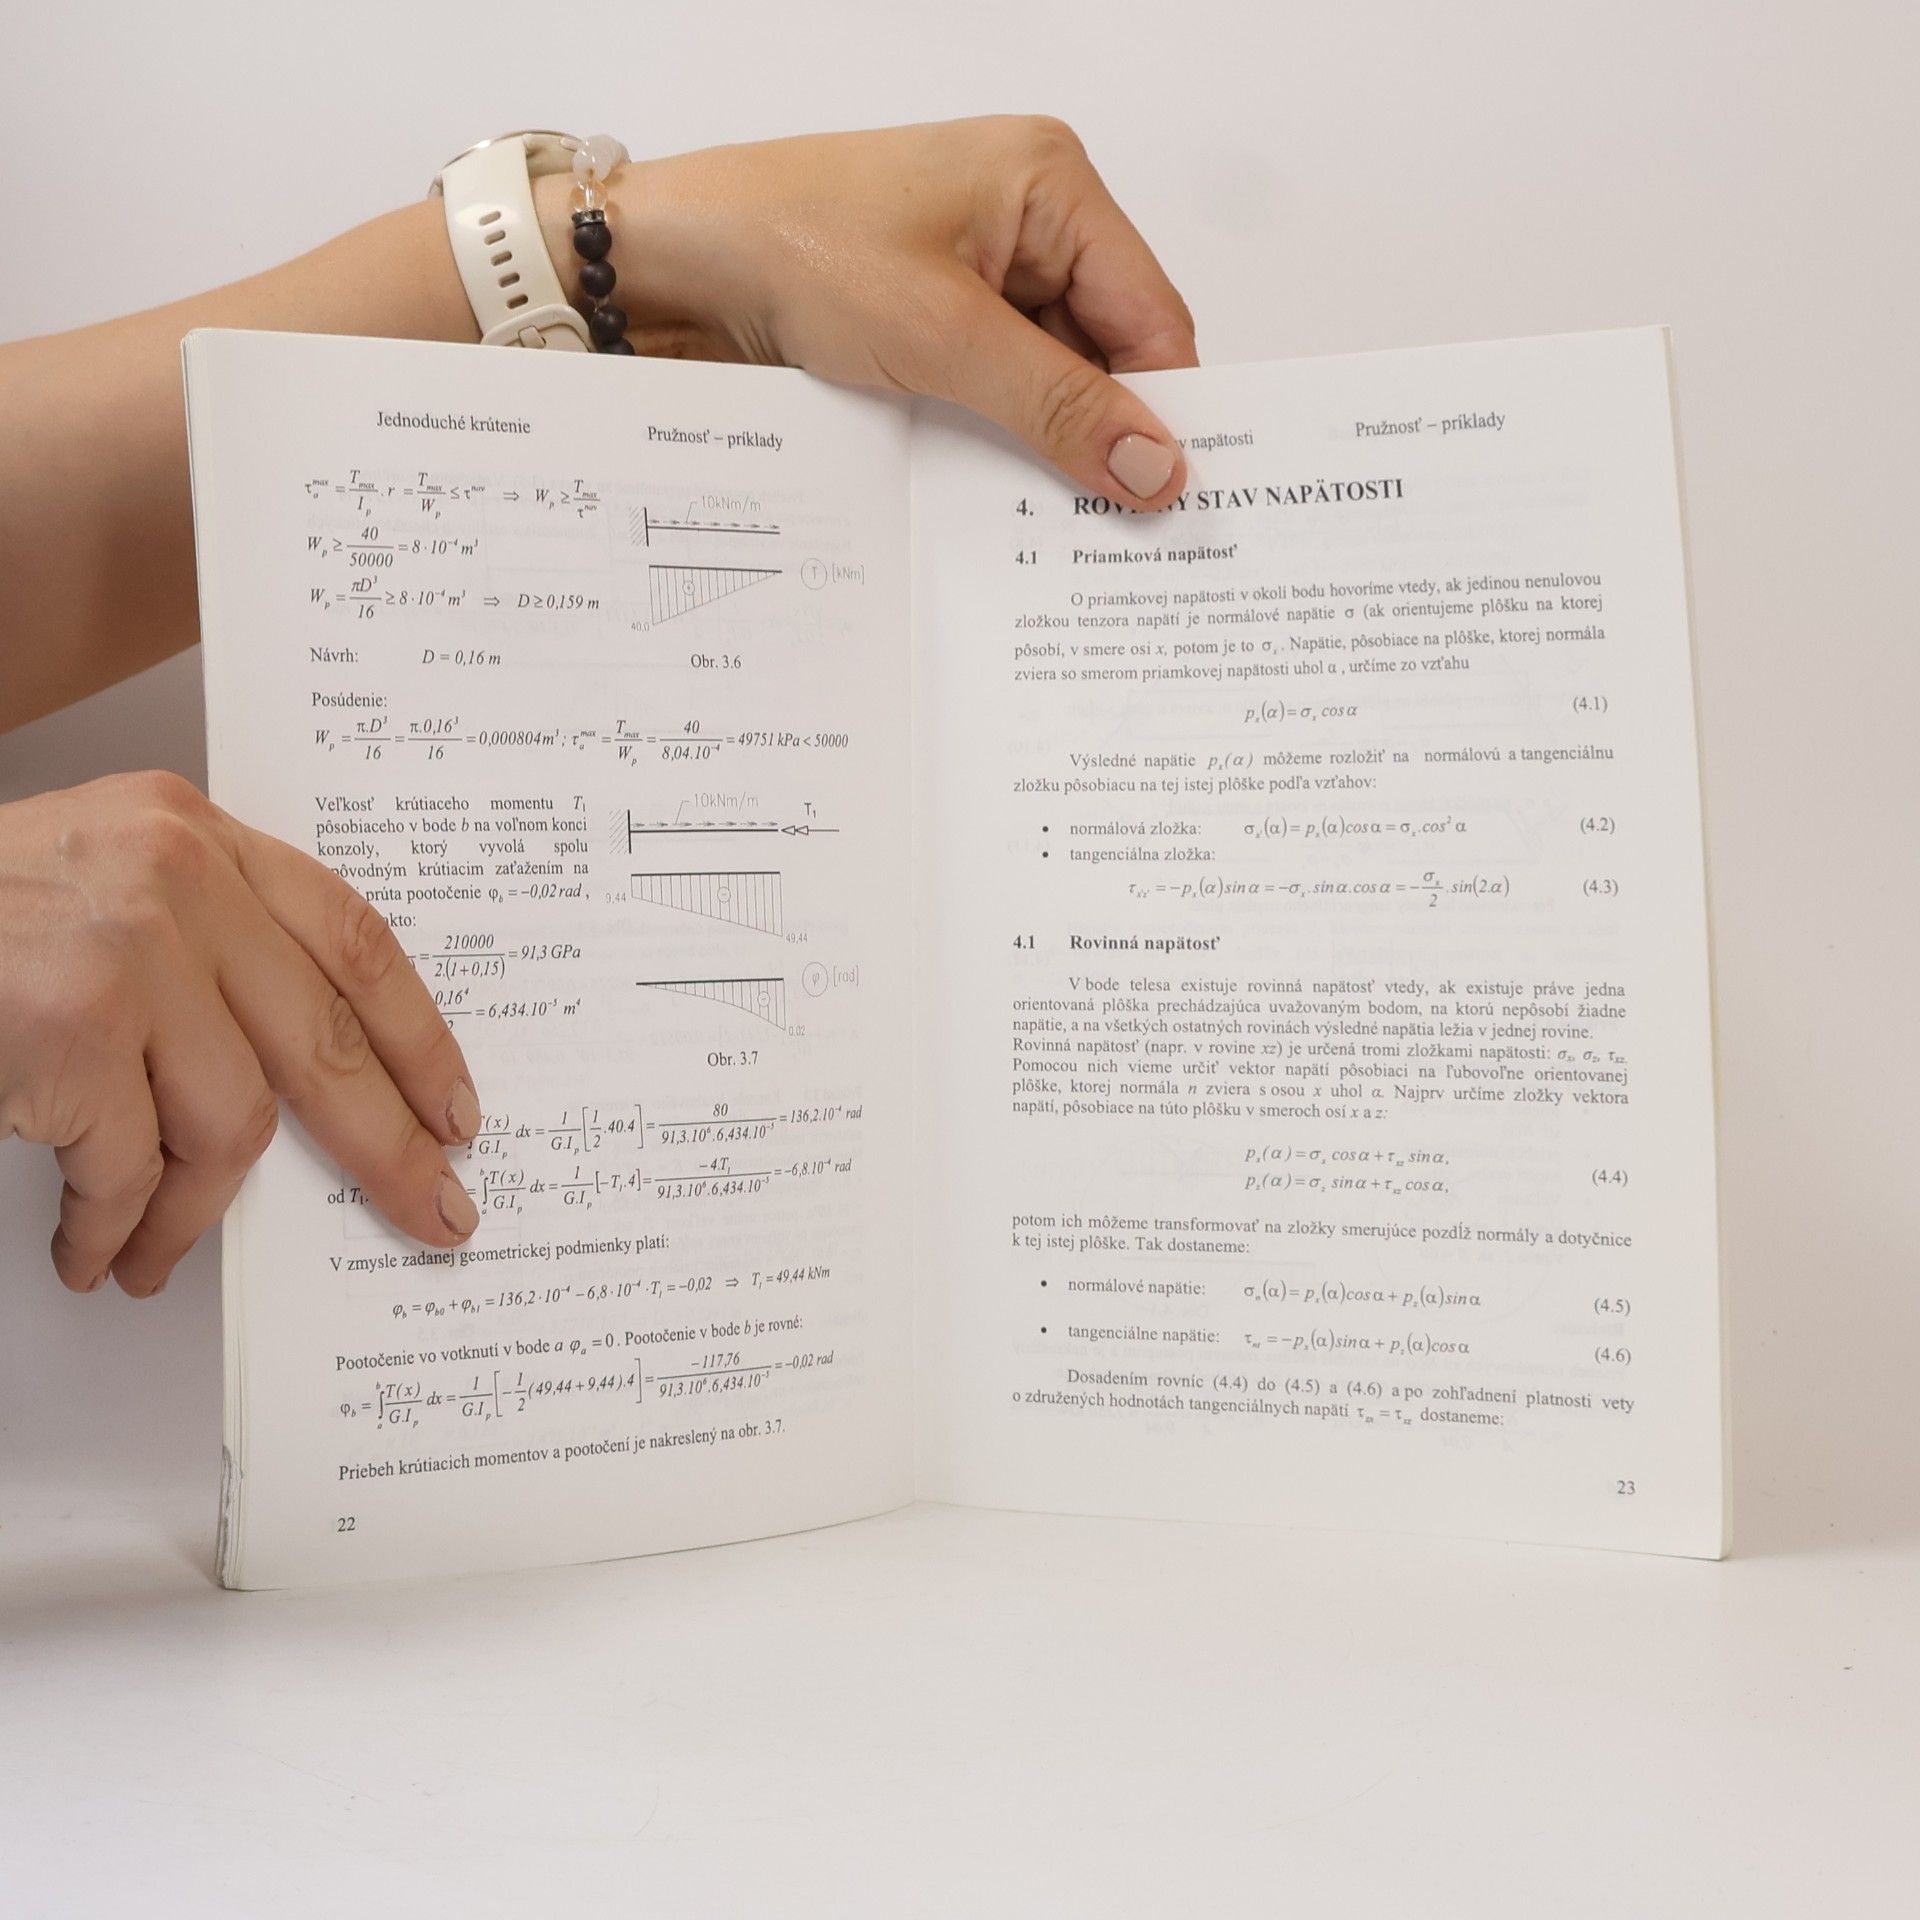 Jednoduché krútenie
Pružnosť – príklady
τₐᵐᵃˣ = Tₘₐₓ/Iₚ . r = Tₘₐₓ/Wₚ ≤ τⁿᵃᵛ ⇒ Wₚ ≥ Tₘₐₓ/τⁿᵃᵛ
Wₚ ≥ 40/50000 = 8·10⁻⁴ m³
Wₚ = πD³/16 ≥ 8·10⁻⁴ m³ ⇒ D ≥ 0,159 m
10kNm/m
T [kNm]
+
40,0
Návrh: D = 0,16 m
Obr. 3.6
Posúdenie:
Wₚ = π.D³/16 = π.0,16³/16 = 0,000804m³ ; τₐᵐᵃˣ = Tₘₐₓ/Wₚ = 40/8,04.10⁻⁴ = 49751 kPa < 50000
Veľkosť krútiaceho momentu T₁
pôsobiaceho v bode b na voľnom konci
konzoly, ktorý vyvolá spolu
pôvodným krútiacim zaťažením na
prúta pootočenie φ_b = −0,02 rad ,
= 210000/2.(1+0,15) = 91,3 GPa
0,16⁴/2 = 6,434.10⁻⁵ m⁴
10kNm/m
T₁
9,44
−
49,44
φ [rad]
−
0,02
Obr. 3.7
T(x)/G.Iₚ dx = 1/G.Iₚ [1/2 .40.4] = 80/91,3.10⁶.6,434.10⁻⁵ = 136,2.10⁻⁴ rad
od T₁. = ∫ₐᵇ T(x)/G.Iₚ dx = 1/G.Iₚ [−T₁.4] = −4.T₁/91,3.10⁶.6,434.10⁻⁵ = −6,8.10⁻⁴ rad
V zmysle zadanej geometrickej podmienky platí:
φ_b = φ_b0 + φ_b1 = 136,2·10⁻⁴ − 6,8·10⁻⁴ ·T₁ = −0,02 ⇒ T₁ = 49,44 kNm
Pootočenie vo votknutí v bode a φₐ = 0 . Pootočenie v bode b je rovné:
φ_b = ∫ₐᵇ T(x)/G.Iₚ dx = 1/G.Iₚ [−1/2 (49,44 + 9,44).4] = −117,76/91,3.10⁶.6,434.10⁻⁵ = −0,02 rad
Priebeh krútiacich momentov a pootočení je nakreslený na obr. 3.7.
22
napätosti
Pružnosť – príklady
4. STAV NAPÄTOSTI
4.1 Priamková napätosť
O priamkovej napätosti v okolí bodu hovoríme vtedy, ak jedinou nenulovou
zložkou tenzora napätí je normálové napätie σ (ak orientujeme plôšku na ktorej
pôsobí, v smere osi x, potom je to σₓ. Napätie, pôsobiace na plôške, ktorej normála
zviera so smerom priamkovej napätosti uhol α , určíme zo vzťahu
pₓ(α) = σₓ cosα (4.1)
Výsledné napätie pₓ(α) môžeme rozložiť na normálovú a tangenciálnu
zložku pôsobiacu na tej istej plôške podľa vzťahov:
• normálová zložka: σₓ'(α) = pₓ(α)cosα = σₓ.cos²α (4.2)
• tangenciálna zložka:
τₓ'z' = −pₓ(α)sinα = −σₓ.sinα.cosα = −σₓ/2 .sin(2.α) (4.3)
4.1 Rovinná napätosť
V bode telesa existuje rovinná napätosť vtedy, ak existuje práve jedna
orientovaná plôška prechádzajúca uvažovaným bodom, na ktorú nepôsobí žiadne
napätie, a na všetkých ostatných rovinách výsledné napätia ležia v jednej rovine.
Rovinná napätosť (napr. v rovine xz) je určená tromi zložkami napätosti: σₓ, σ_z, τ_xz.
Pomocou nich vieme určiť vektor napätí pôsobiaci na ľubovoľne orientovanej
plôške, ktorej normála n zviera s osou x uhol α. Najprv určíme zložky vektora
napätí, pôsobiace na túto plôšku v smeroch osí x a z:
pₓ(α) = σₓ cosα + τ_xz sinα,
p_z(α) = σ_z sinα + τ_xz cosα, (4.4)
potom ich môžeme transformovať na zložky smerujúce pozdĺž normály a dotyčnice
k tej istej plôške. Tak dostaneme:
• normálové napätie: σₙ(α) = pₓ(α)cosα + p_z(α)sinα (4.5)
• tangenciálne napätie: τ_nt = −pₓ(α)sinα + p_z(α)cosα (4.6)
Dosadením rovníc (4.4) do (4.5) a (4.6) a po zohľadnení platnosti vety
o združených hodnotách tangenciálnych napätí τ_zx = τ_xz dostaneme:
23